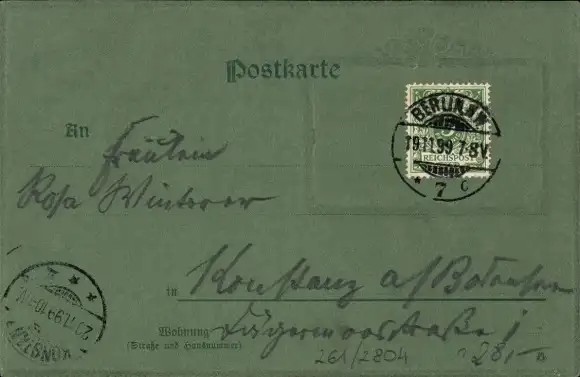 Postkarte
BERLIN N.W.
19.11.99. 7-8V.
REICHSPOST
* 7 c
An
Fräulein
Rosa Winterer
in Konstanz a/ Bodensee
Wohnung Jägermoosstraße 1
(Straße und Hausnummer)
261/2804
28,-
KONSTANZ
20.11.99